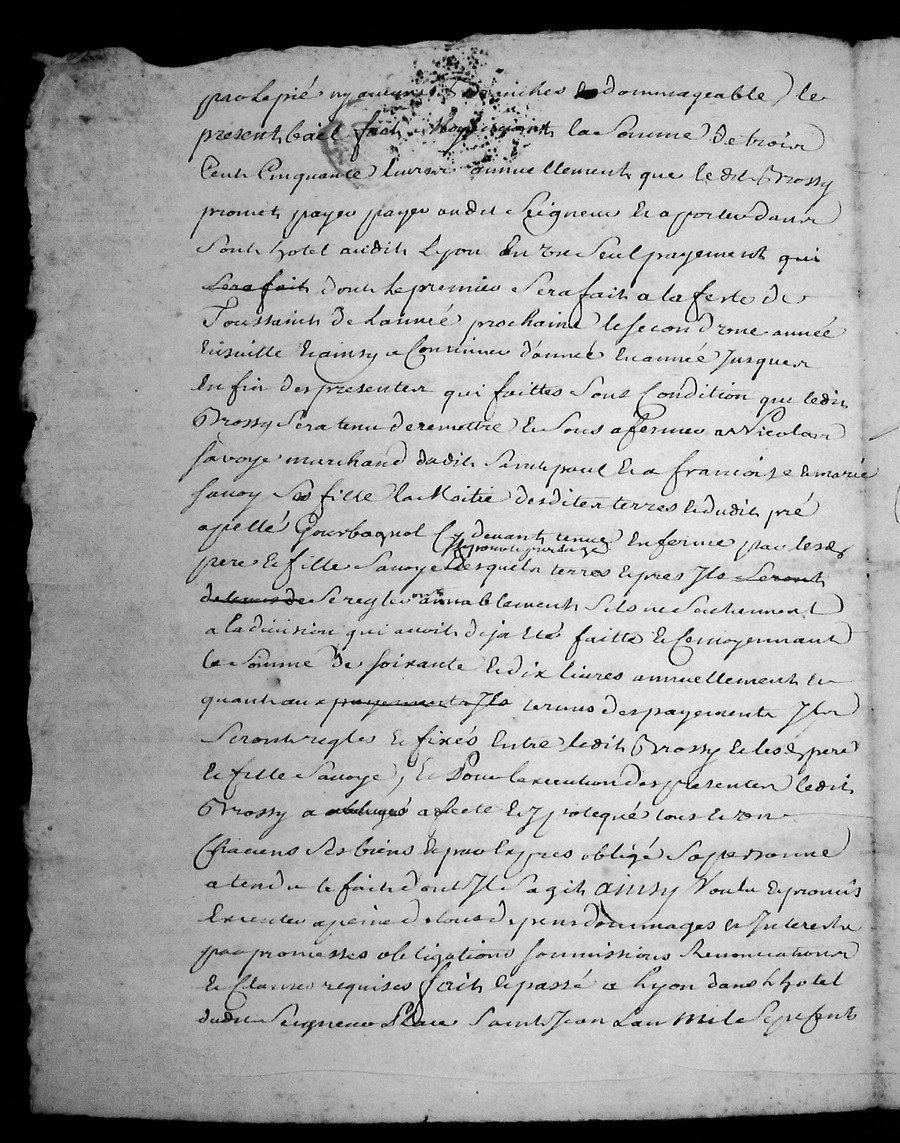 par le pié ny aucunes branches dommageable, le
present bail fait moyennant la somme de trois
Cent Cinquante livres annuellement que ledit Brossy
promet payer payer audit Seigneur et aporter dans
Sont hotel audit Lyon en un seul payement qui
sera fait dont le premier sera fait a la feste de
Toussaint de Lannée prochaine le second d'une année
Ensuitte et ainsy a Continuer d'année en année Jusques
En fin des presentes qui faittes Sous Condition que ledit
Brossy sera tenu de remettre et sous afermer a Nicolas
savoye marchand dudit Saint paul et a francoise et marie
savoy ses fille la Moitié desdites terres et dudit pré
apellé Gourbagnol Cy devant tenue en ferme par lesd
pere et fille Savoye pour le partage desquels terres et pres Ils seront
se regler amiablement Sils ne Sentiennent
a la division qui avoit deja été faitte et Ce moyennant
la somme de soixante et dix livres annuellement et
quant aux payements Ils termes des payements Ils
Seront regles et fixés Entre ledit Brossy et lesd pere
et fille Savoye, et Pour l'execution des presentes ledit
Brossy a obligé afecté et ypotequé tous et un
Chacuns Ses biens et par Expres obligé sa personne
atendu le fait dont Il Sagit ainsy Voulu et promis
Executer a peine de tous depens dommages et Interests
par promesses obligations soummissions Renonciations
et Clauses requises fait et passé a Lyon dans lhotel
dudit Seigneur Place Saint Jean Lan mil Sept sent